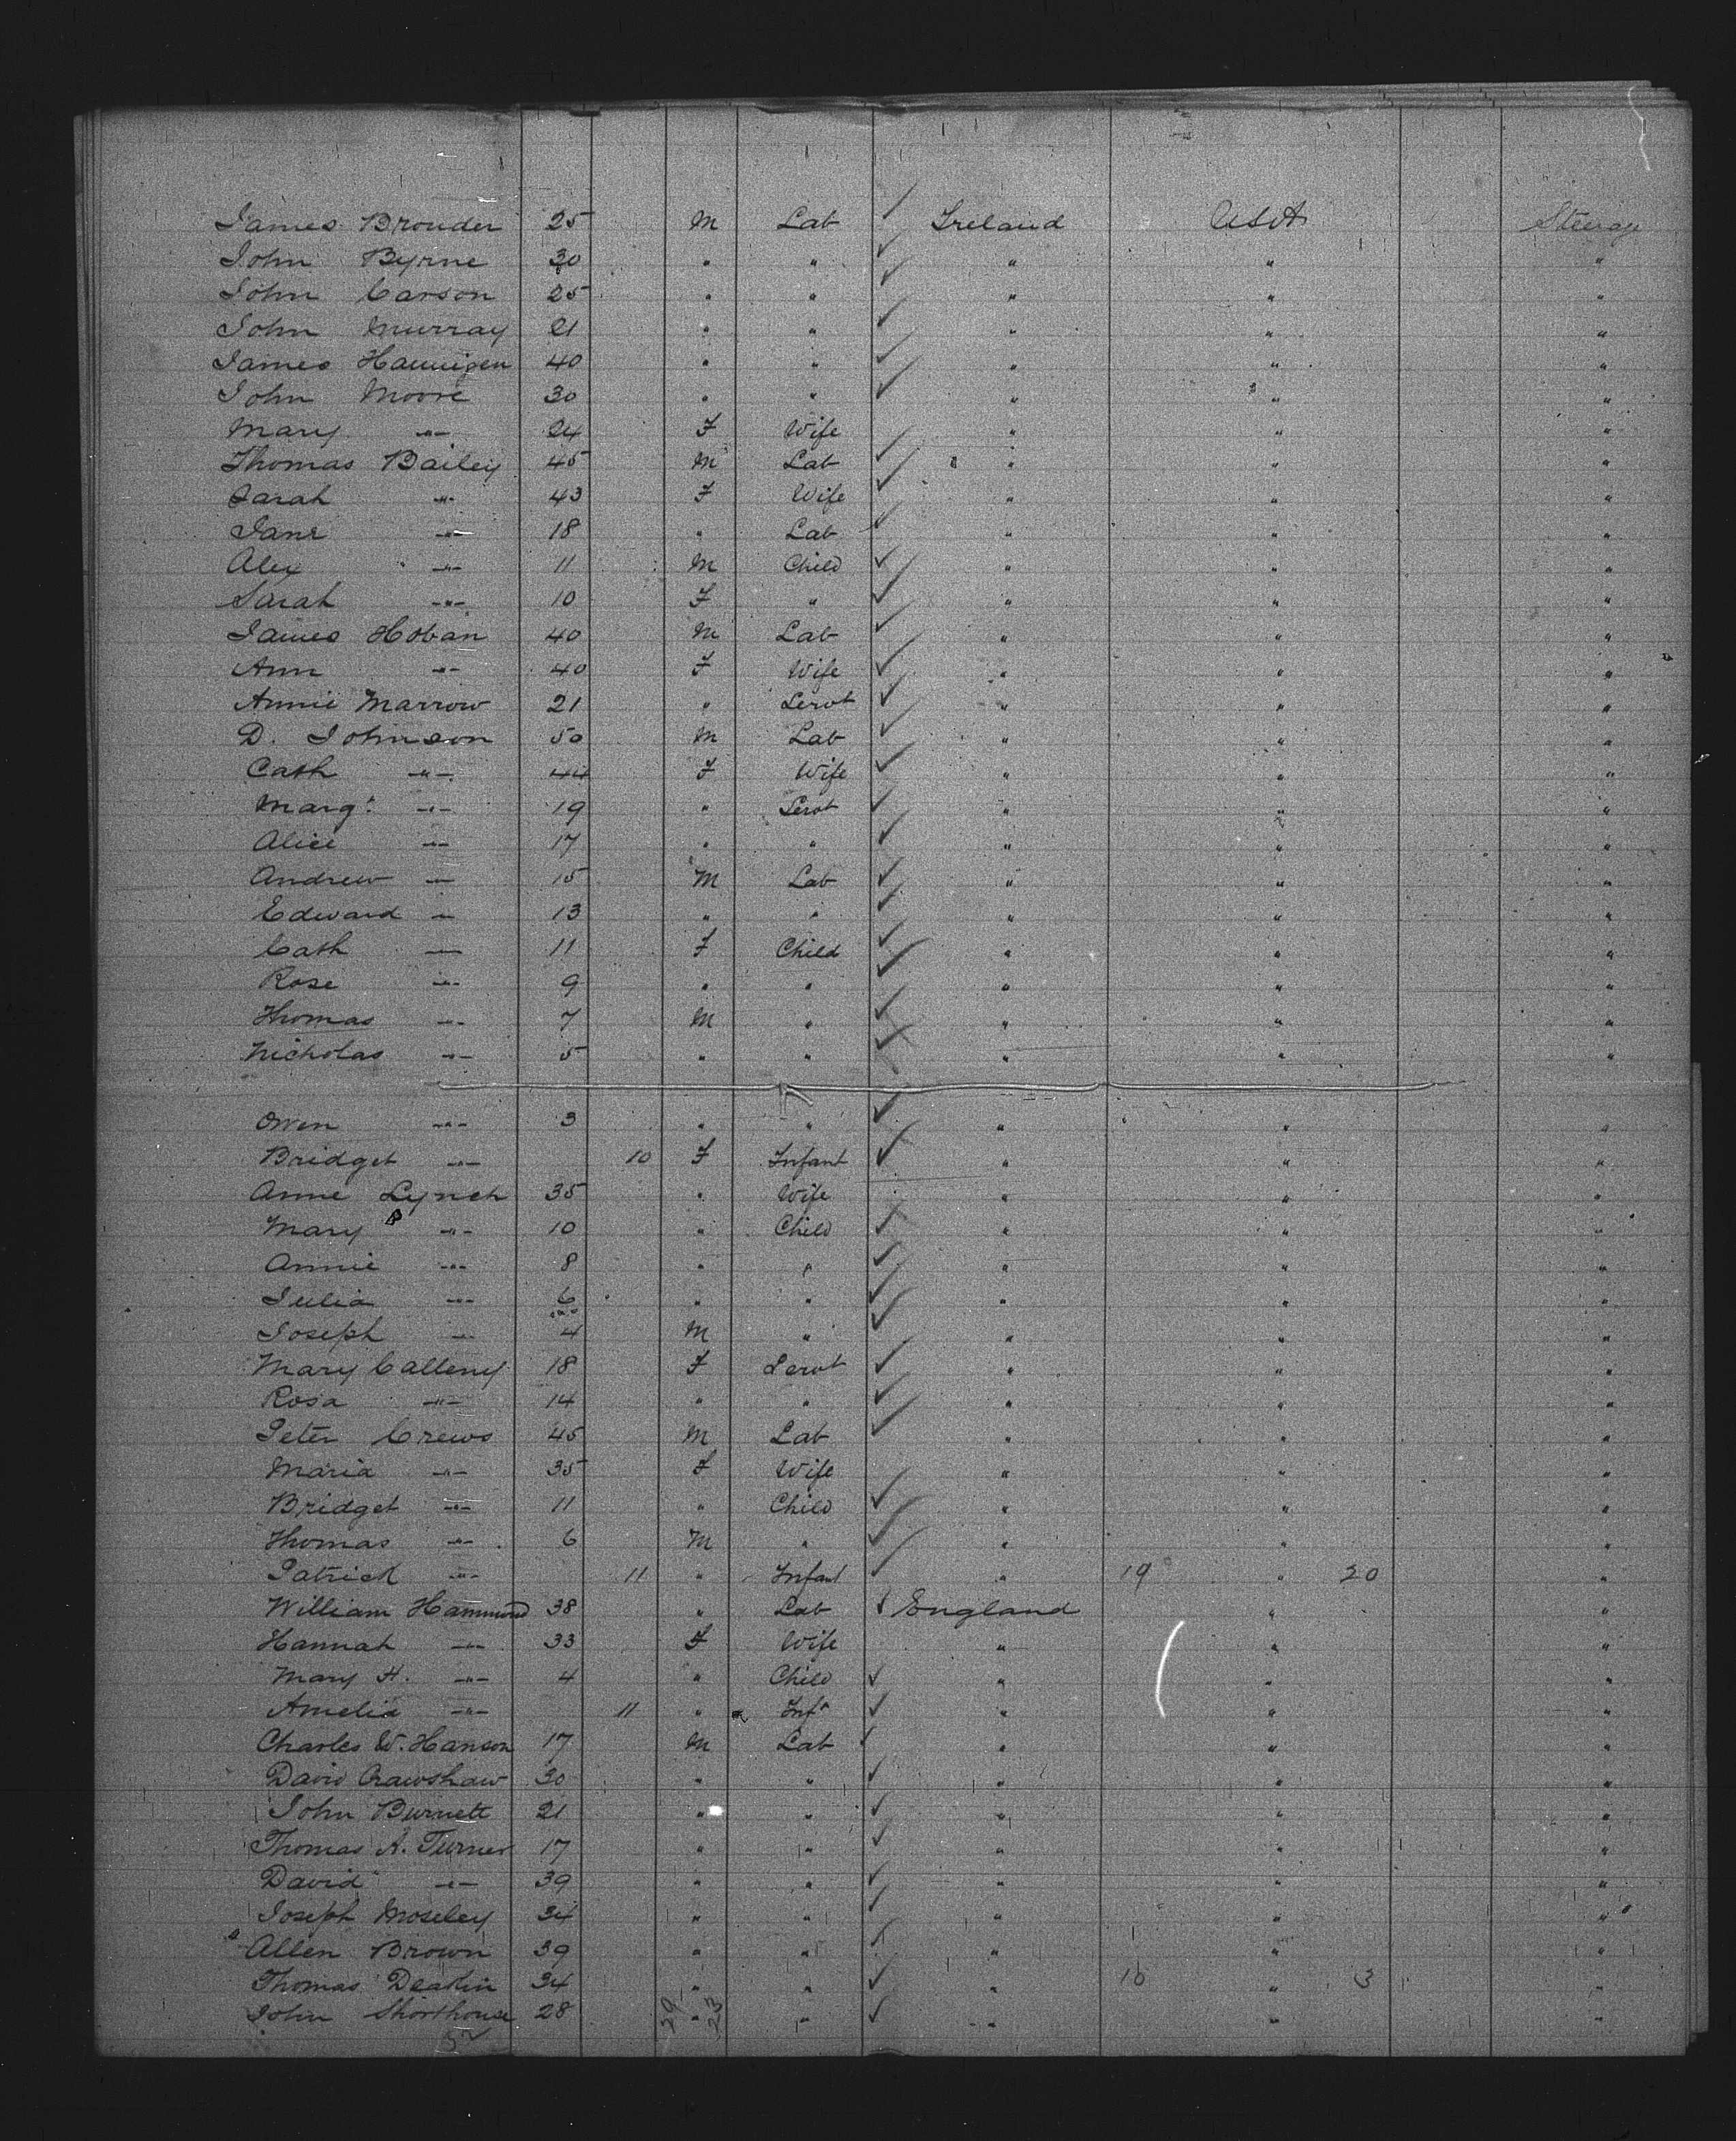 James Brouder 25 M Lab ✓ Ireland USA Steerage
John Byrne 30 " " ✓ " " "
John Carson 25 " " ✓ " " "
John Murray 21 " " ✓ " " "
James Hannigen 40 " " ✓ " " "
John Moore 30 " " ✓ " " "
Mary " 24 F Wife " " "
Thomas Bailey 45 M Lab ✓ " " "
Sarah " 43 F Wife ✓ " " "
Jane " 18 " Lab ✓ " " "
Alex " 11 M Child ✓ " " "
Sarah " 10 F " ✓ " " "
James Hoban 40 M Lab ✓ " " "
Ann " 40 F Wife ✓ " " "
Annie Marrow 21 " Servt ✓ " " "
D. Johnson 50 M Lab ✓ " " "
Cath " 44 F Wife ✓ " " "
Margt " 19 " Servt ✓ " " "
Alice " 17 " " ✓ " " "
Andrew " 15 M Lab ✓ " " "
Edward " 13 " " ✓ " " "
Cath " 11 F Child ✓ " " "
Rose " 9 " " ✓ " " "
Thomas " 7 M " ✓ " " "
Nicholas " 5 " " ✓ " " "
Owen " 3 " " ✓ " " "
Bridget " 10 F Infant ✓ " " "
Anne Lynch 35 " Wife " " "
Mary " 10 " Child ✓ " " "
Annie " 8 " " ✓ " " "
Julia " 6 " " ✓ " " "
Joseph " 4 M " ✓ " " "
Mary Calleny 18 F Servt ✓ " " "
Rosa " 14 " " ✓ " " "
Peter Crews 45 M Lab ✓ " " "
Maria " 35 F Wife " " "
Bridget " 11 " Child ✓ " " "
Thomas " 6 M " ✓ " " "
Patrick " 11 " Infant ✓ " 19 " 20 "
William Hammond 38 " Lab ✓ England " "
Hannah " 33 F Wife " " "
Mary A. " 4 " Child ✓ " " "
Amelia " 11 " Inft ✓ " " "
Charles W. Hanson 17 M Lab ✓ " " "
David Crawshaw 30 " " ✓ " " "
John Burnett 21 " " ✓ " " "
Thomas A. Turner 17 " " ✓ " " "
David " 39 " " ✓ " " "
Joseph Moseley 34 " " ✓ " " "
Allen Brown 39 " " ✓ " " "
Thomas Deakin 34 " " ✓ " 10 " 3 "
John Shorthouse 28 " " ✓ " " "
29 23
52